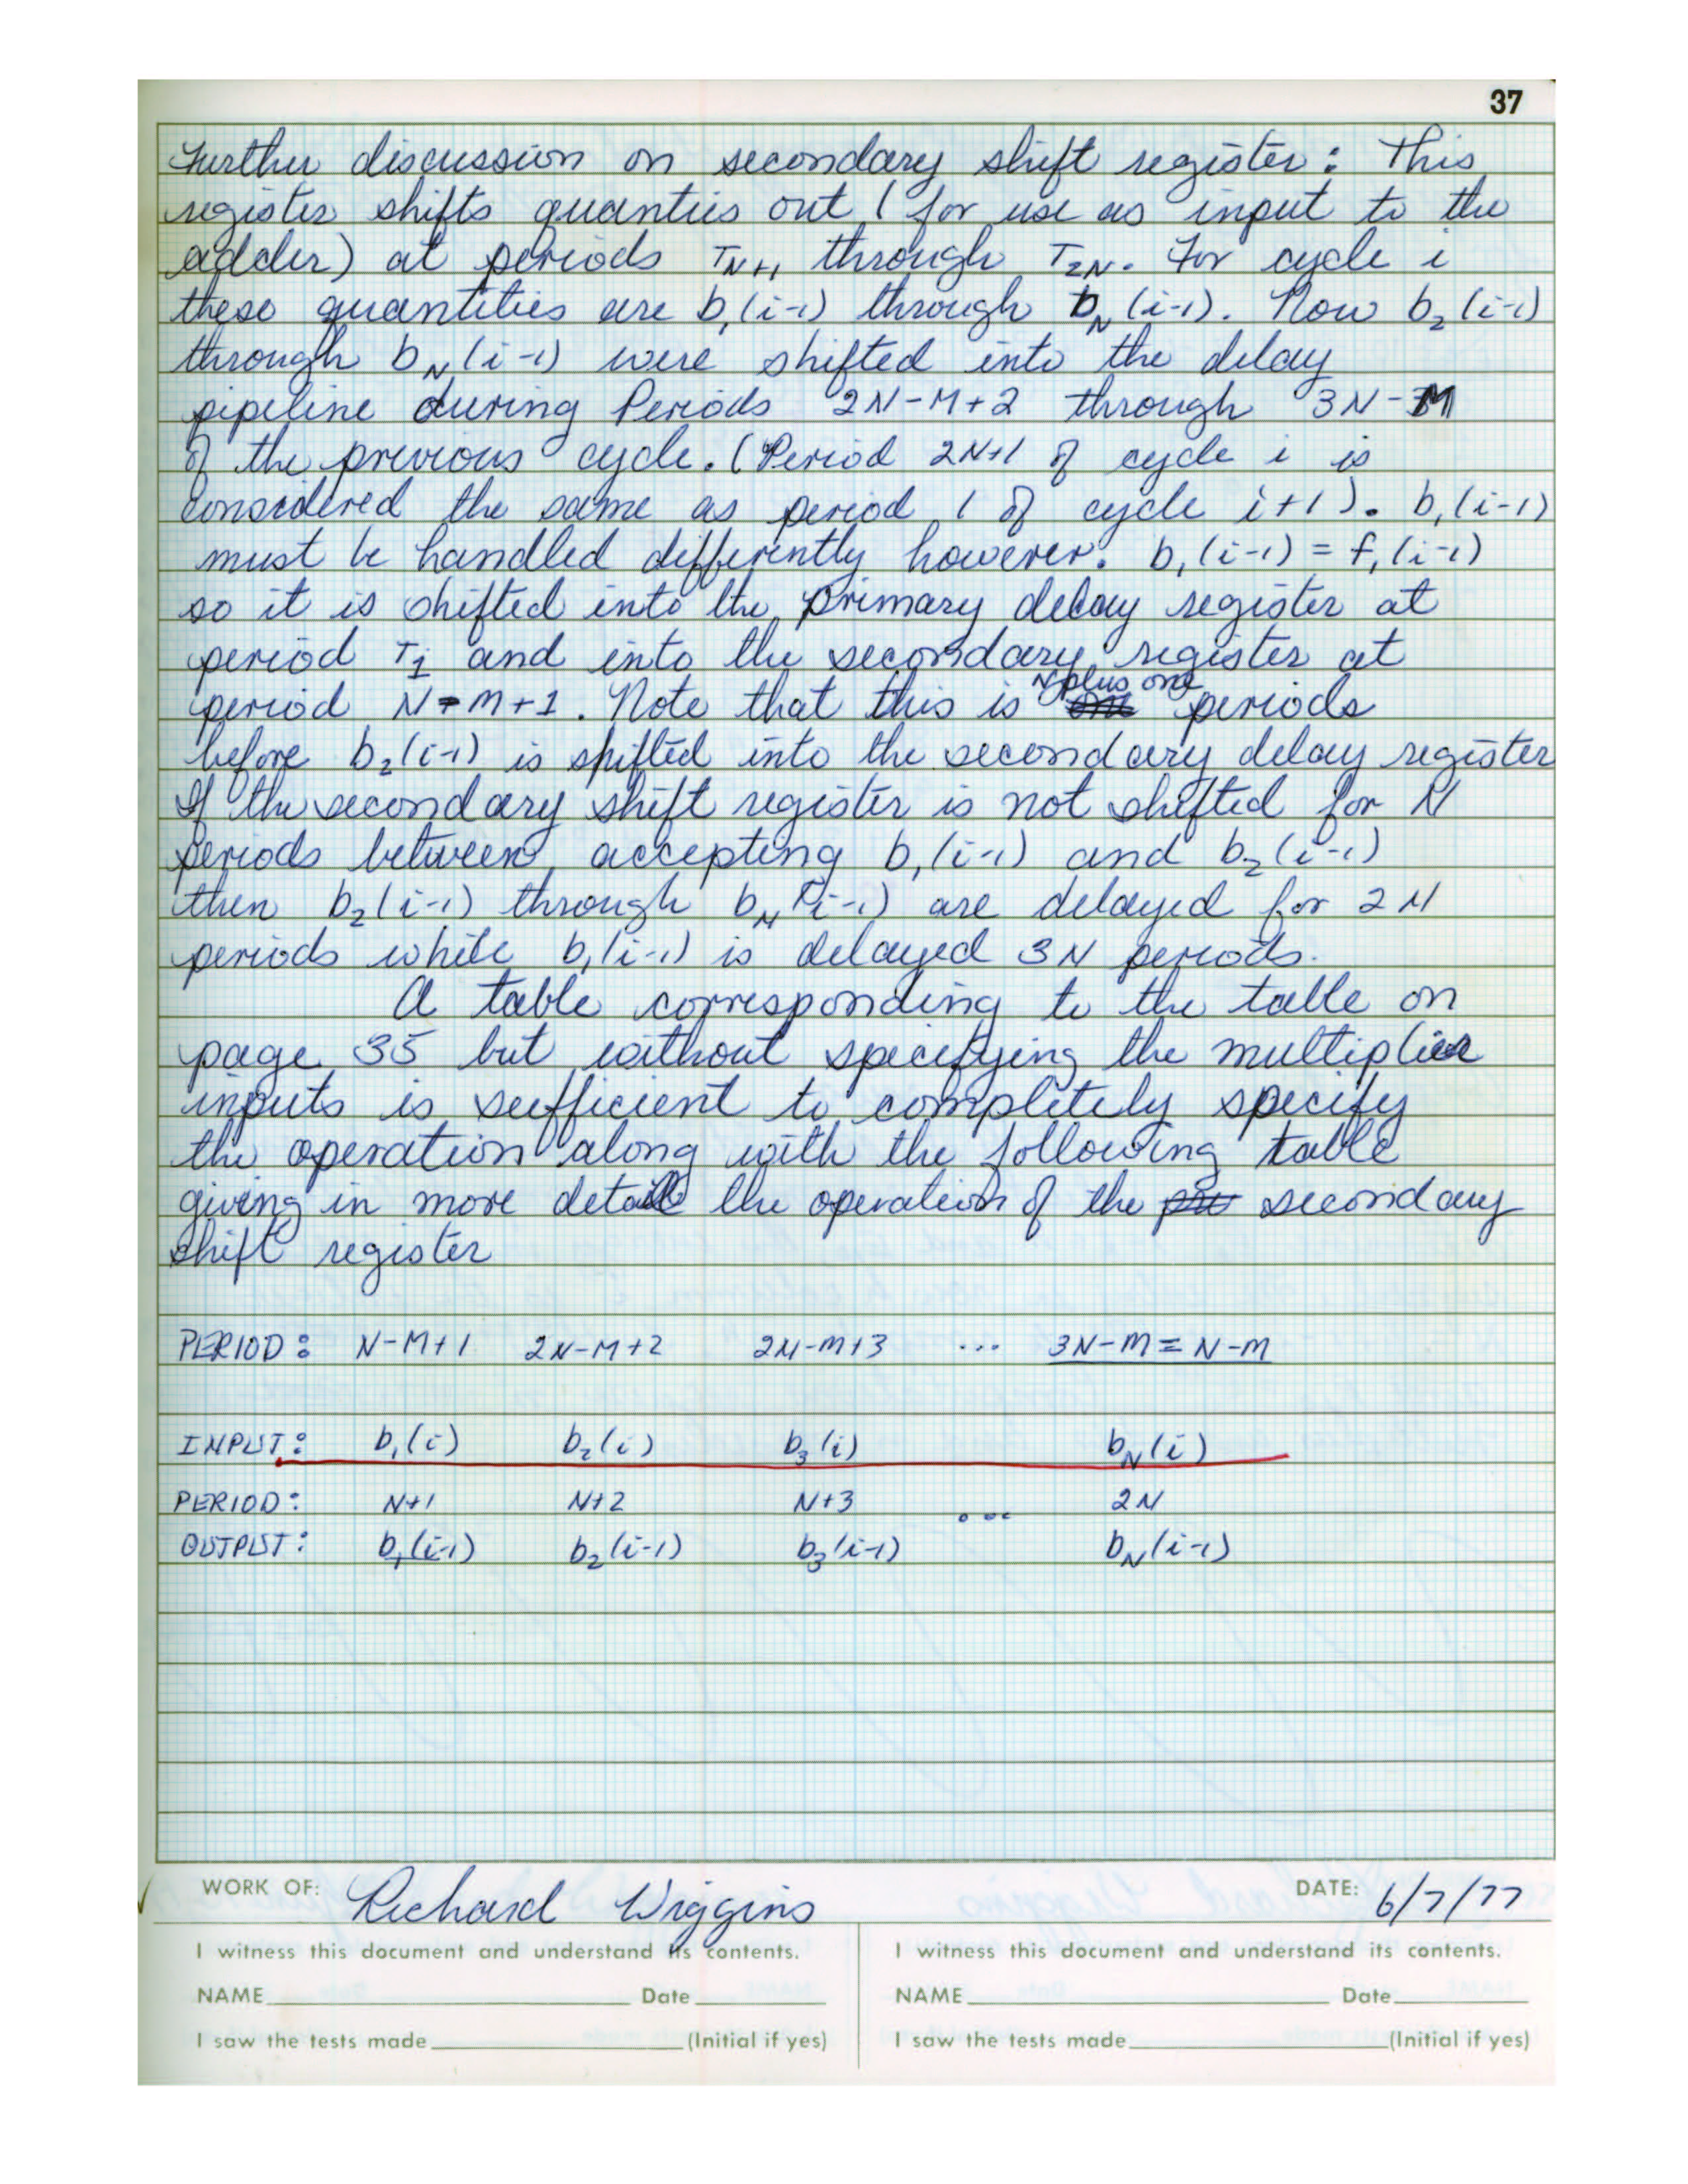 37
Further discussion on secondary shift register: This
register shifts quanties out (for use as input to the
adder) at periods T_N+1 through T_2N. For cycle i
these quantities are b_1(i-1) through b_N(i-1). Now b_2(i-1)
through b_N(i-1) were shifted into the delay
pipeline during Periods 2N-M+2 through 3N-M
of the previous cycle. (Period 2N+1 of cycle i is
considered the same as period 1 of cycle i+1). b_1(i-1)
must be handled differently however. b_1(i-1) = f_1(i-1)
so it is shifted into the primary delay register at
period T_1 and into the secondary register at
period N-M+1. Note that this is N plus one periods
before b_2(i-1) is shifted into the secondary delay register
If the secondary shift register is not shifted for N
periods between accepting b_1(i-1) and b_2(i-1)
then b_2(i-1) through b_N(i-1) are delayed for 2N
periods while b_1(i-1) is delayed 3N periods.
A table corresponding to the table on
page 35 but without specifying the multiplier
inputs is sufficient to completely specify
the operation along with the following table
giving in more detail the operation of the secondary
shift register
PERIOD: N-M+1 2N-M+2 2N-M+3 ... 3N-M=N-M
INPUT: b_1(i) b_2(i) b_3(i) b_N(i)
PERIOD: N+1 N+2 N+3 ... 2N
OUTPUT: b_1(i-1) b_2(i-1) b_3(i-1) b_N(i-1)
WORK OF: Richard Wiggins DATE: 6/7/77
I witness this document and understand its contents. I witness this document and understand its contents.
NAME Date NAME Date
I saw the tests made (Initial if yes) I saw the tests made (Initial if yes)